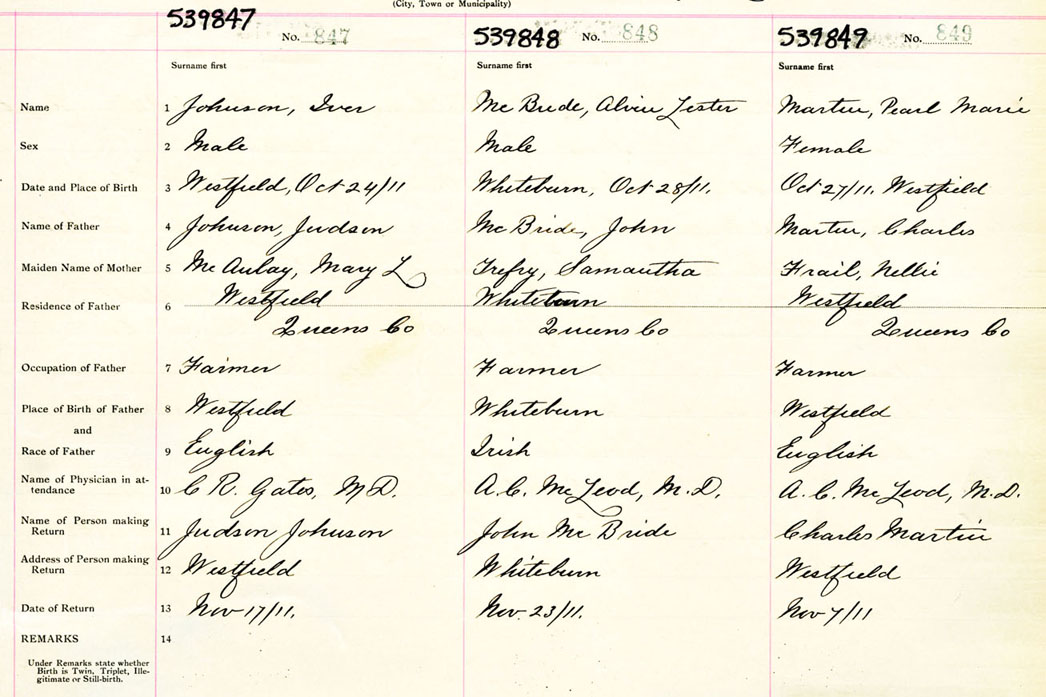 (City, Town or Municipality)
539847 No. 847 539848 No. 848 539849 No. 849
Surname first Surname first Surname first
Name 1 Johnson, Iver Mc Bride, Alvin Lester Martin, Pearl Marie
Sex 2 Male Male Female
Date and Place of Birth 3 Westfield, Oct 24/11 Whiteburn, Oct 28/11. Oct 27/11. Westfield
Name of Father 4 Johnson, Judson Mc Bride, John Martin, Charles
Maiden Name of Mother 5 Mc Aulay, Mary L Trefry, Samantha Frail, Nellie
Residence of Father 6 Westfield Whiteburn Westfield
Queens Co Queens Co Queens Co
Occupation of Father 7 Farmer Farmer Farmer
Place of Birth of Father 8 Westfield Whiteburn Westfield
and
Race of Father 9 English Irish English
Name of Physician in at-
tendance 10 C R. Gates, M D. A. C. Mc Leod, M. D. A. C. Mc Leod, M. D.
Name of Person making
Return 11 Judson Johnson John Mc Bride Charles Martin
Address of Person making
Return 12 Westfield Whiteburn Westfield
Date of Return 13 Nov 17/11. Nov. 23/11. Nov 7/11
REMARKS 14
Under Remarks state whether
Birth is Twin, Triplet, Ille-
gitimate or Still-birth.